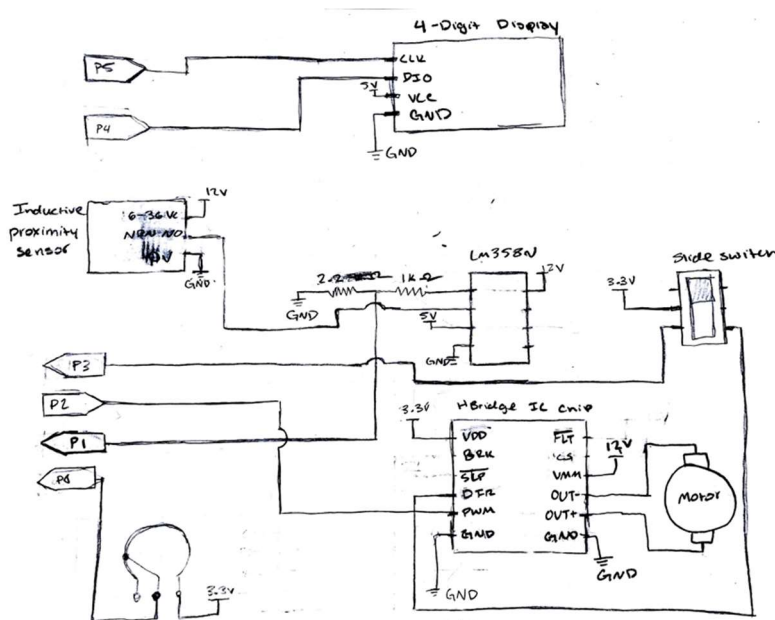 4-Digit Display
P5
CLK
DIO
5V
VCC
GND
P4
GND
Inductive
proximity
sensor
6-36Vc
12V
NPN-NO
GND
2.2
1k Ω
GND
5V
GND
LM358N
12V
Slide switch
3.3V
P3
P2
P1
P0
3.3V
H Bridge IC Chip
VDD
BRK
SLP
DIR
PWM
GND
FLT
CS
VMM
OUT-
OUT+
GND
12V
Motor
GND
GND
3.3V